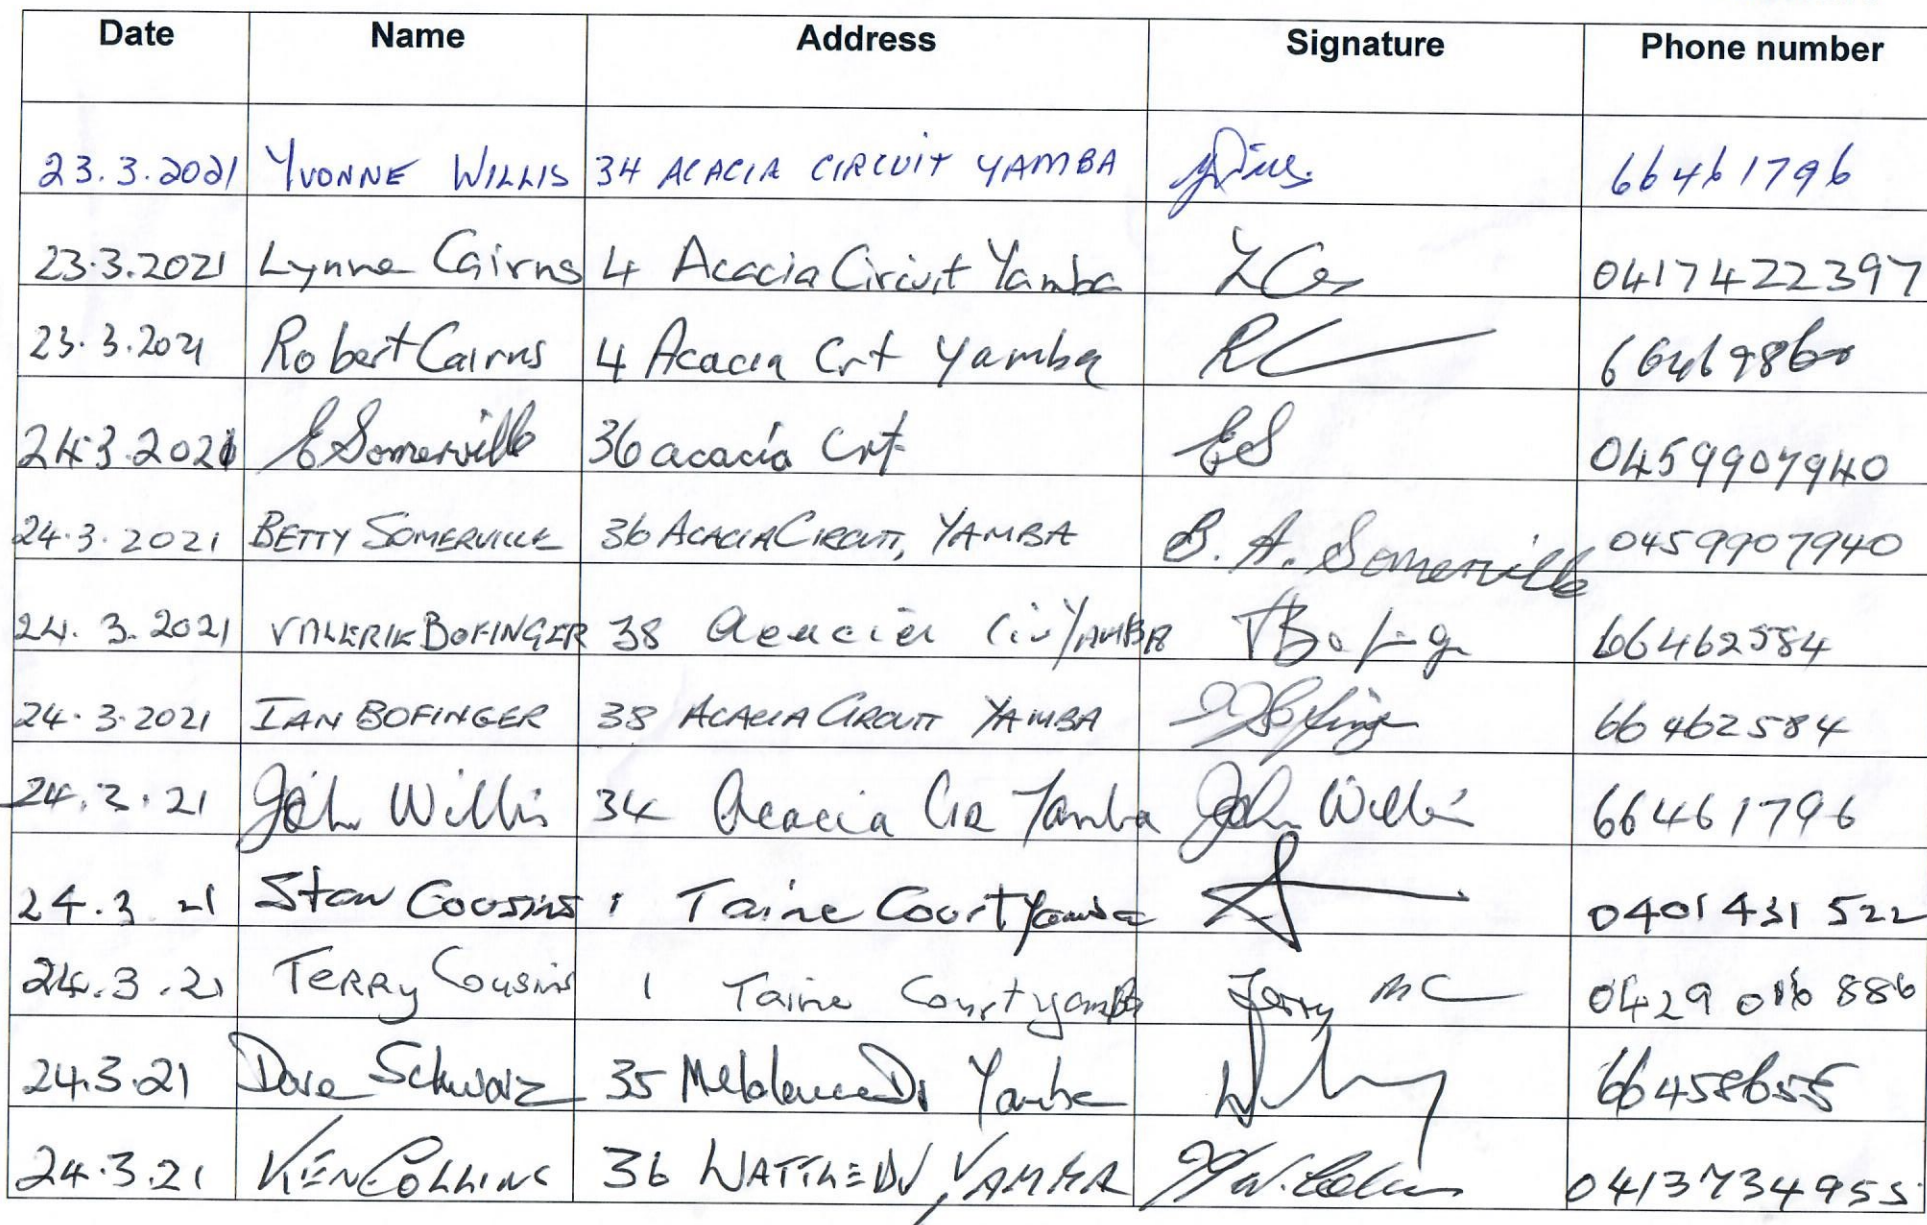 Date Name Address Signature Phone number
23.3.2021 YVONNE WILLIS 34 ACACIA CIRCUIT YAMBA 66461796
23.3.2021 Lynne Cairns 4 Acacia Circuit Yamba 0417422397
23.3.2021 Robert Cairns 4 Acacia Crt Yamba
24.3.2021 E Somerville 36 acacia Crt ES 0459907940
24.3.2021 BETTY SOMERVILLE 36 ACACIA CIRCUIT, YAMBA B. A. Somerville 0459907940
24.3.2021 VALERIE BOFINGER 38 Acacia Cir YAMBA 66462584
24.3.2021 IAN BOFINGER 38 ACACIA CIRCUIT YAMBA 66462584
24.3.21 John Willis 34 Acacia Cir Yamba John Willis 66461796
24.3.21 Stan Cousins 1 Taine Court Yamba 0401 431 522
24.3.21 TERRY Cousins 1 Taine Court yamba Terry MC 0429 016 886
24.3.21 Dave Schwarz 35 Melaleuca Dr Yamba 66458655
24.3.21 KEN COLLINS 36 WATTLE DV, YAMBA 0413734955